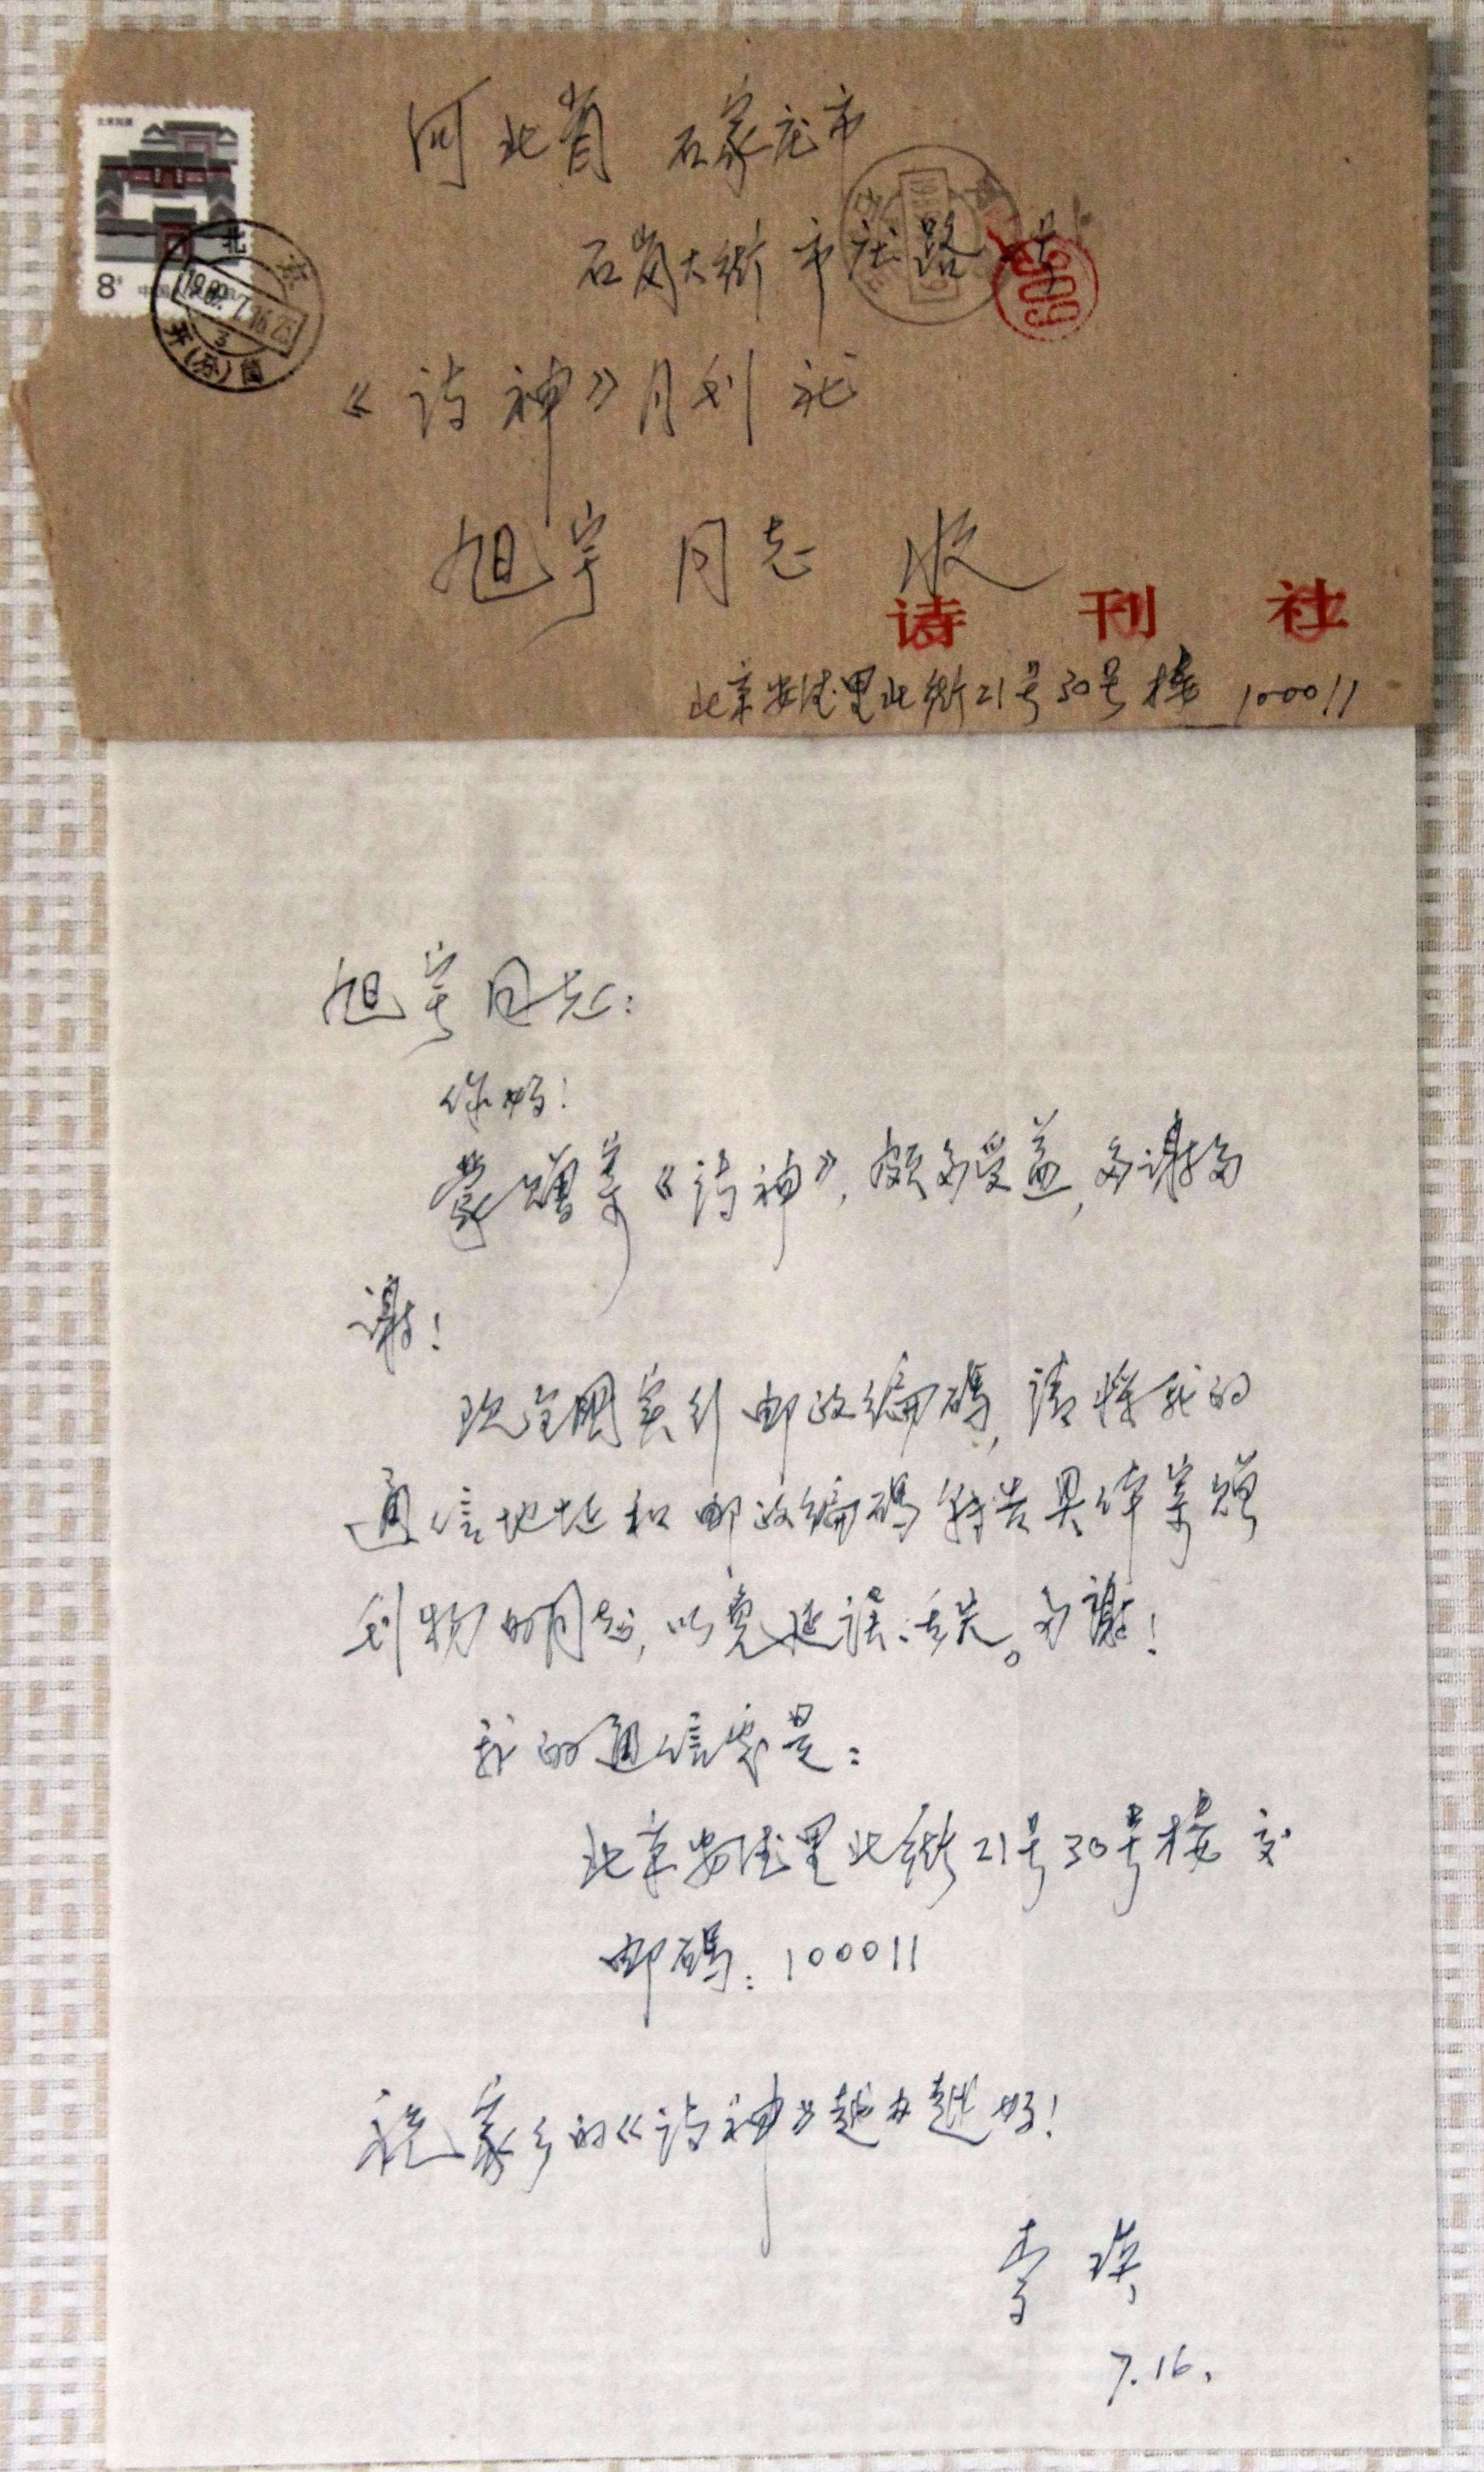 河北省 石家庄市
石岗大街市庄路 号
《诗神》月刊社
旭宇同志 收
诗刊社
北京安德里北街21号30号楼 100011
8分
北京
609
旭宇同志:
你好!
蒙赠寄《诗神》,颇多受益,多谢多
谢!
现全国实行邮政编码,请将我的
通信地址和邮政编码转告具体寄赠
刊物的同志,以免延误、丢失。多谢!
我的通信处是:
北京安德里北街21号30号楼 交
邮码:100011
祝家乡的《诗神》越办越好!
李瑛
7.16.